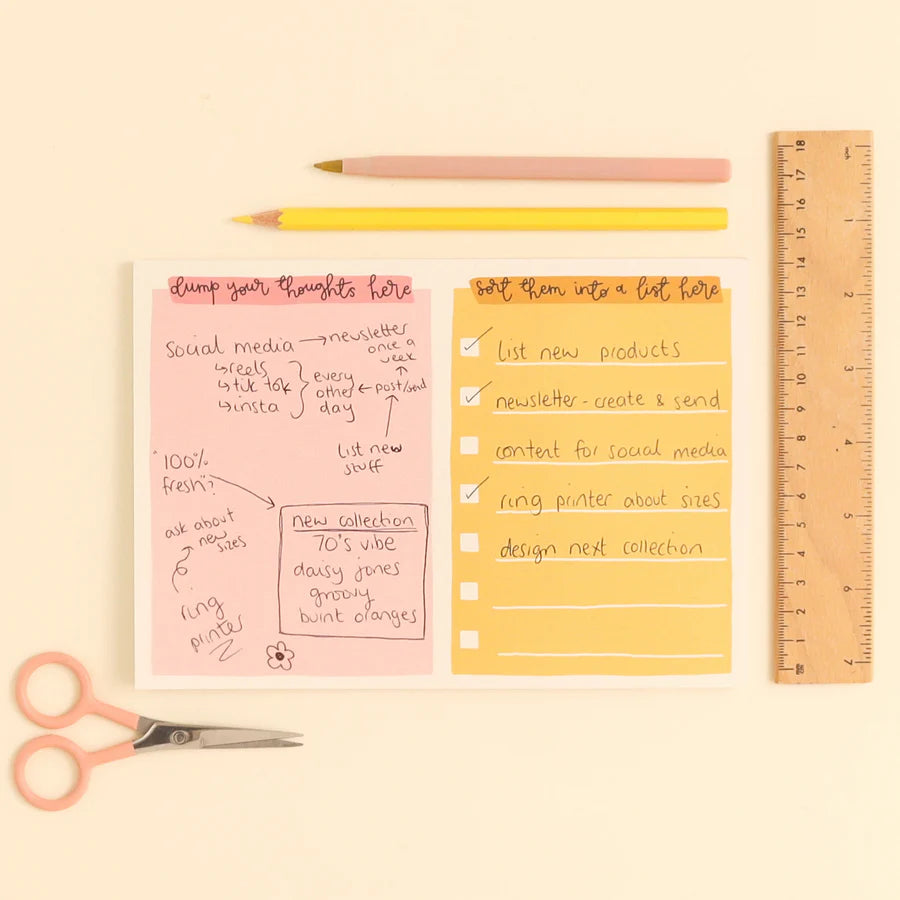 dump your thoughts here
Social media → newsletter
once a
week
↳ reels
↳ tik tok
↳ insta
every
other
day
← post/send
list new
stuff
"100%
fresh"?
ask about
new
sizes
ring
printer
new collection
70's vibe
daisy jones
groovy
burnt oranges
sort them into a list here
list new products
newsletter - create & send
content for social media
ring printer about sizes
design next collection
18
17
16
15
14
13
12
11
10
9
8
7
6
5
4
3
2
1
inch
1
2
3
4
5
6
7